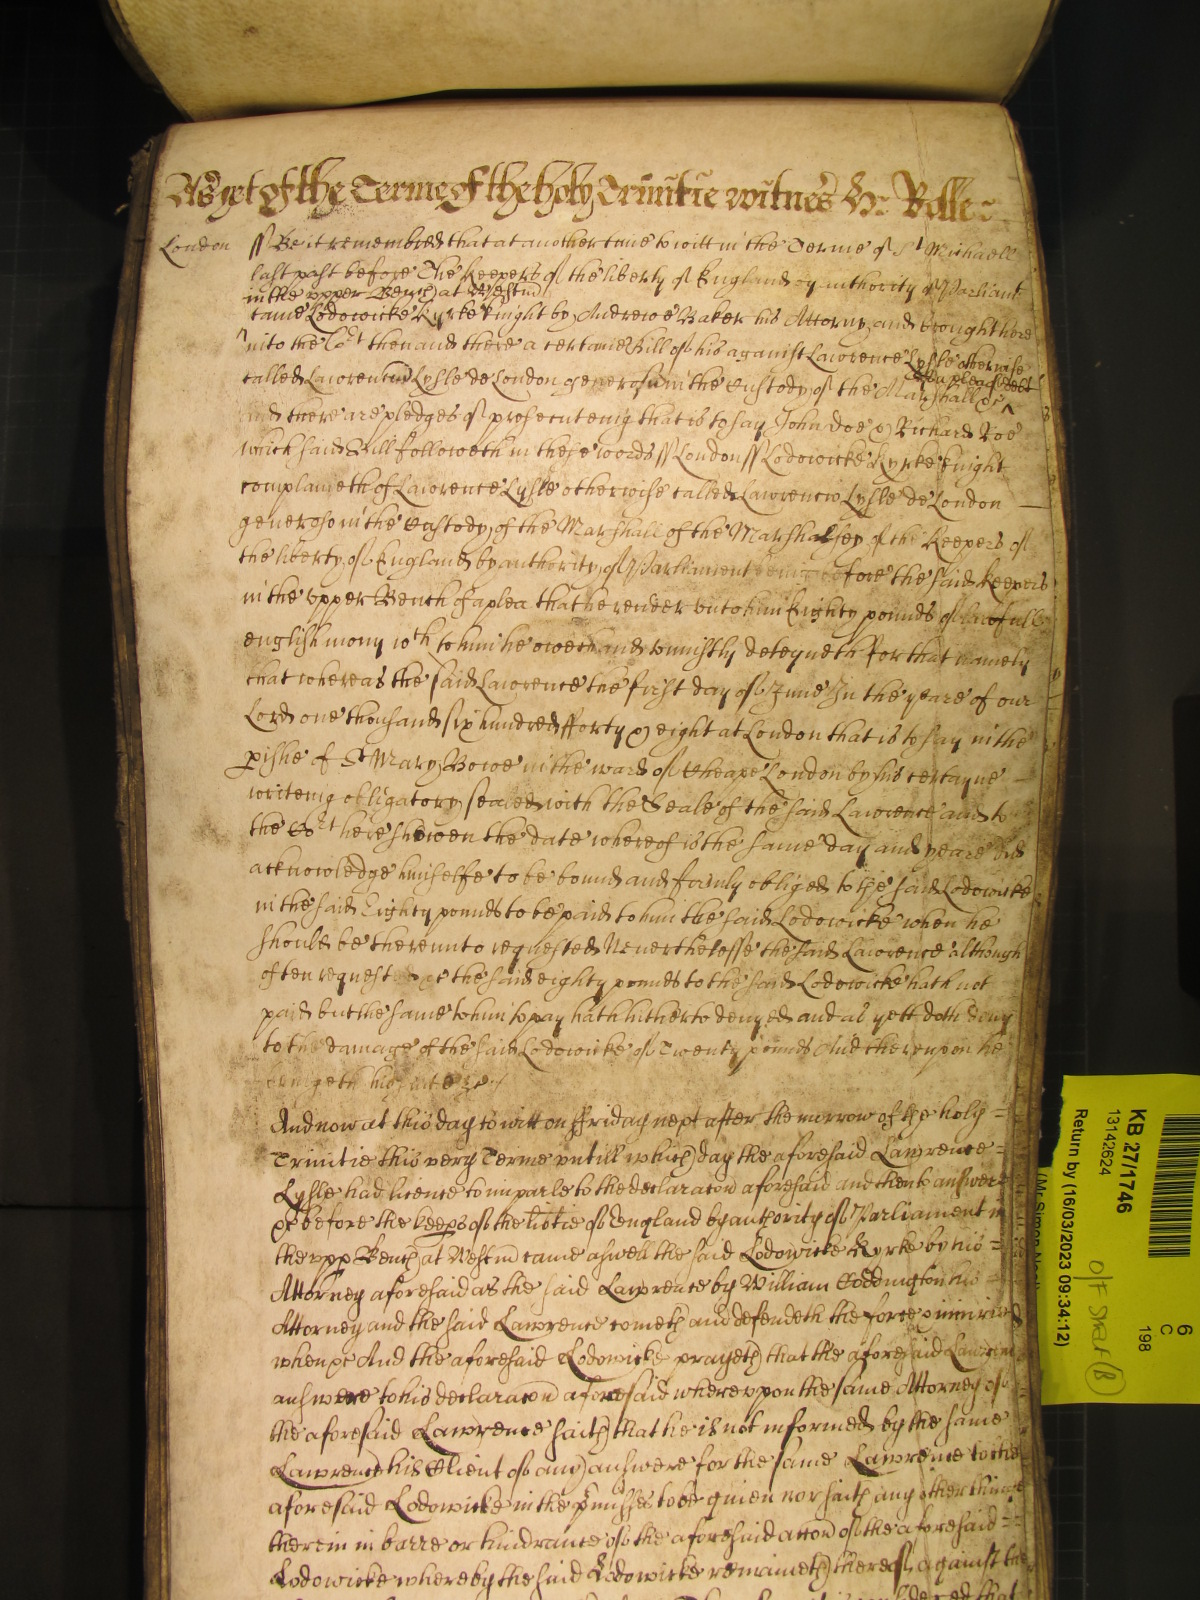 As yet of the Terme of the holy Trinitie witnes H: Rolle :
London ss Be it remembred that at another time to witt in the Terme of St Michaell
last past before The Keepers of the liberty of England by authority of Parliamt
in the upper Bench at Westm
came Lodowicke Kyrke knight by Andrewe Baker his Attorny and brought here
into the Cort then and there a certaine Bill of his against Lawrence Lysle otherwise
called Lawrencium Lysle de London generosum in the custody of the Marshall &c
of a plea of debt
And there are pledges of prosecuteing that is to say John Doe & Richard Roe
which said Bill followeth in these words ss London ss Lodowicke Kyrke knight
complaineth of Lawrence Lysle otherwise called Lawrencio Lysle de London
generoso in the Custody of the Marshall of the Marshalsey of the Keepers of
the liberty of England by authority of Parliament being before the said keepers
in the upper Bench of a plea that he render unto him Eighty pounds of lawfull
english mony wch to him he oweth and uniustly deteyneth For that namely
that whereas the said Lawrence the first day of June In the yeare of our
Lord one thousand six hundred fforty & eight at London that is to say in the
pishe of St Mary Bowe in the ward of Cheape London by his certayne
writeing obligatory sealed with the Seale of the said Lawrence and to
the Cort here shewen the date whereof is the same day and yeare did
acknowledge himselfe to be bound and firmly obliged to the said Lodowicke
in the said Eighty pounds to be paid to him the said Lodowicke when he
should be thereunto requested Nevertheless the said Lawrence although
often requested &c the said eighty pounds to the said Lodowicke hath not
paid but the same to him to pay hath hitherto denyed and as yett doth deny
to the damage of the said Lodowicke of Twenty pounds And thereupon he
bringeth his suite &c
And now at this day to witt on ffriday next after the morrow of the holy
Trinitie this very Terme untill which day the aforesaid Lawrence
Lysle had licence to imparle to the declaracon aforesaid and then to answere
&c before the keeps of the libtie of England by authority of Parliament in
the upp Bench at Westm came aswell the said Lodowicke Kyrke by his
Attorney aforesaid as the said Lawrence by William Coddington his
Attorney and the said Lawrence cometh and defendeth the force & iniurie
when &c And the aforesaid Lodowicke prayeth that the aforesaid Lawrence
answere to his declaracon aforesaid whereupon the same Attorney of
the aforesaid Lawrence saith that he is not informed by the same
Lawrence his Client of any answere for the same Lawrence to the
aforesaid Lodowicke in the pmisses to be given nor saith any other thinge
therein in barre or hindrance of the aforesaid accon of the aforesaid
Lodowicke whereby the said Lodowicke remaineth thereof against the
KB 27/1746
13142624
Return by (16/03/2023 09:34:12)
6
C
198